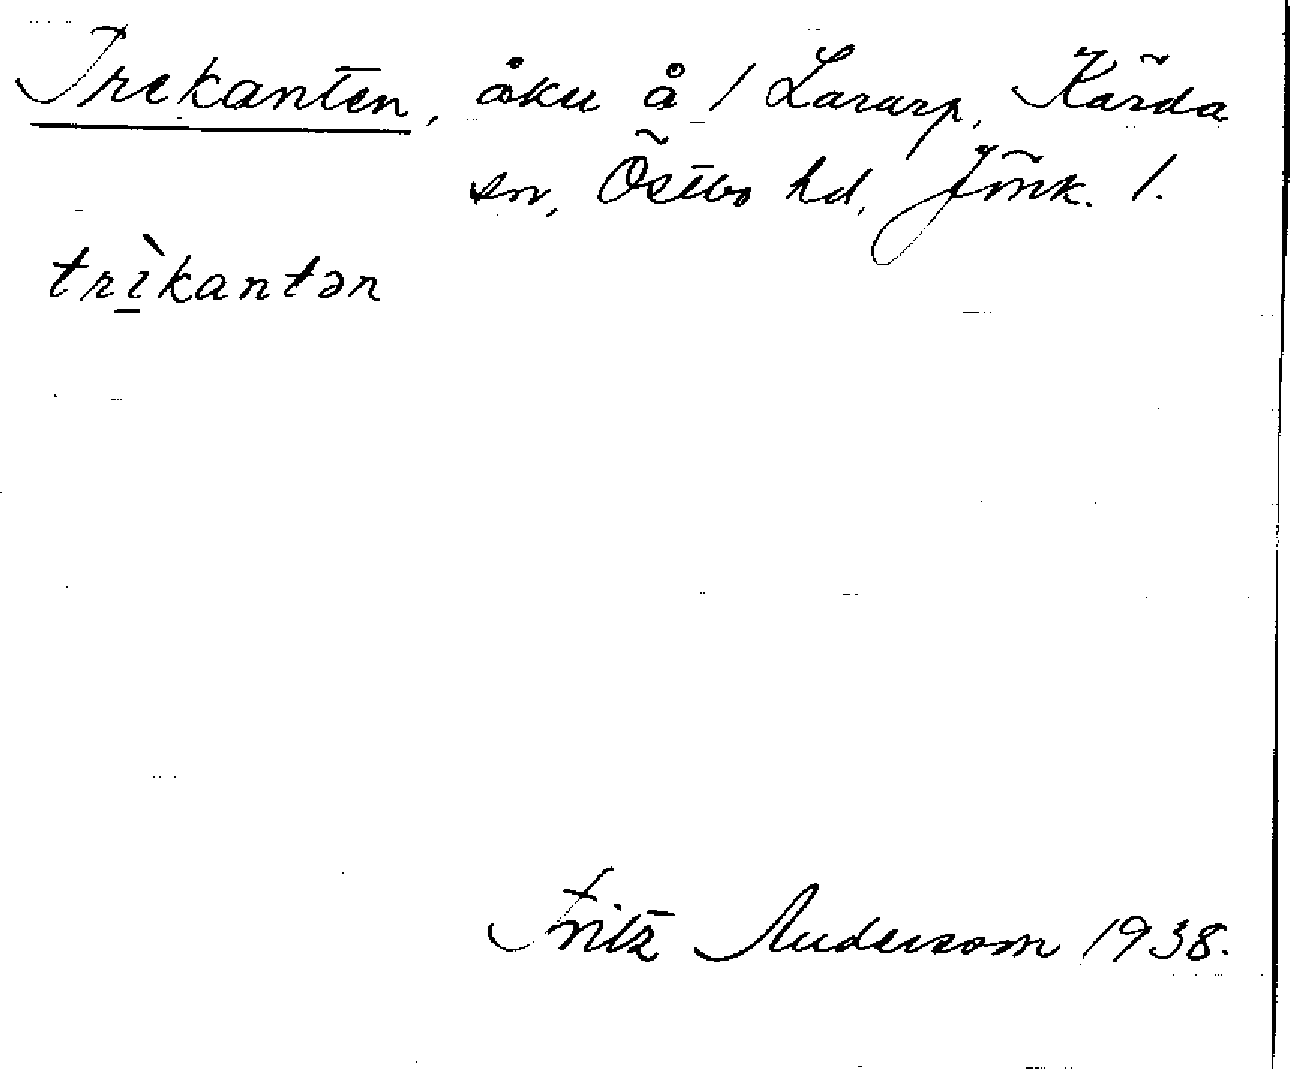 Trekanten, åku å / Lararp, Kärda
sn, Östbo hd, Jönk. l.
trìkantən
Fritz Andersson 1938.